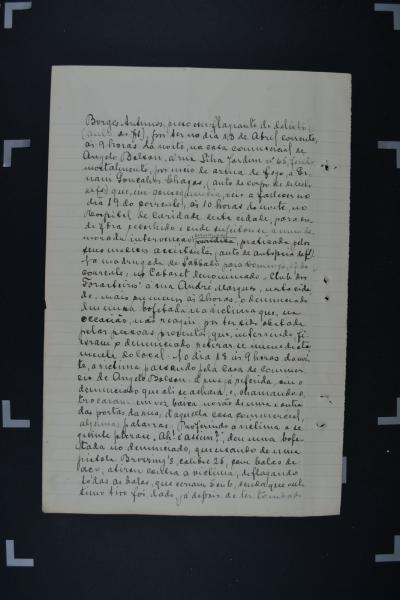 Borges Antunes, preso em flagrante de delicto
(auto de fl), por ter no dia 18 de Abril corrente,
ás 9 horas da noite, na casa commercial de
Angelo Bolson, á rua Silva Jardim nº 65, ferido
mortalmente, por meio de arma de fogo, a
Gonçalves Chagas, (auto de corpo de delicto
que, em consequencia, veio a fallecer no
dia 19 do corrente, ás 10 horas da noite, no
Hospital de Caridade desta cidade, para on-
de fôra recolhido e onde sujeitou-se a uma de-
morada intervenção praticada pelos
seus medicos assistentes, (auto de autopsia de fl)
Na madrugada de sabbado para Domingo, do
corrente, no Cabaret denominado "Club dos
Forasteiros" á rua André Marques, nesta cida-
de, mais ou menos ás 2 horas, o denunciado
deu uma bofetada na victima que, na
occasião, não reagiu por ter sido obstada
pelas pessoas presentes que, intervindo, fi-
zeram o denunciado retirar-se immediata-
mente do local. No dia 18 ás 9 horas da noi-
te, a victima passando pela casa de commer-
cio de Angelo Bolson, á rua já referida, viu o
denunciado que ali se achava e, chamando-o,
trocaram em voz baixa, vindo de uma e outra
das portas da rua, d'aquella casa commercial,
algumas palavras. Proferindo a victima a se-
guinte phrase: "Ah! é assim?", deu uma bofe-
tada no denunciado, que usando de uma
pistola Browning's, calibre 25, com balas de
aço, atirou contra a victima, deflagrando
todas as balas, que eram 5 ou 6, sendo que o ul-
timo tiro foi dado, já depois de ter tombado